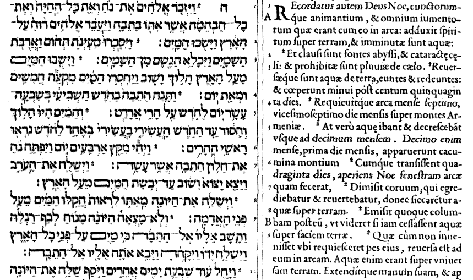 וַיִּזְכֹּר אֱלֹהִים אֶת נֹחַ וְאֵת כָּל הַחַיָּה וְאֶת
כָּל הַבְּהֵמָה אֲשֶׁר אִתּוֹ בַּתֵּבָה וַיַּעֲבֵר אֱלֹהִים רוּחַ עַל
הָאָרֶץ וַיָּשֹׁכּוּ הַמָּיִם: וַיִּסָּכְרוּ מַעְיְנֹת תְּהוֹם וַאֲרֻבֹּת
הַשָּׁמָיִם וַיִּכָּלֵא הַגֶּשֶׁם מִן הַשָּׁמָיִם: וַיָּשֻׁבוּ הַמַּיִם
מֵעַל הָאָרֶץ הָלוֹךְ וָשׁוֹב וַיַּחְסְרוּ הַמַּיִם מִקְצֵה חֲמִשִּׁים
וּמְאַת יוֹם: וַתָּנַח הַתֵּבָה בַּחֹדֶשׁ הַשְּׁבִיעִי בְּשִׁבְעָה
עָשָׂר יוֹם לַחֹדֶשׁ עַל הָרֵי אֲרָרָט: וְהַמַּיִם הָיוּ הָלוֹךְ
וְחָסוֹר עַד הַחֹדֶשׁ הָעֲשִׂירִי בָּעֲשִׂירִי בְּאֶחָד לַחֹדֶשׁ נִרְאוּ
רָאשֵׁי הֶהָרִים: וַיְהִי מִקֵּץ אַרְבָּעִים יוֹם וַיִּפְתַּח נֹחַ
אֶת חַלּוֹן הַתֵּבָה אֲשֶׁר עָשָׂה: וַיְשַׁלַּח אֶת הָעֹרֵב
וַיֵּצֵא יָצוֹא וָשׁוֹב עַד יְבֹשֶׁת הַמַּיִם מֵעַל הָאָרֶץ:
וַיְשַׁלַּח אֶת הַיּוֹנָה מֵאִתּוֹ לִרְאוֹת הֲקַלּוּ הַמַּיִם מֵעַל
פְּנֵי הָאֲדָמָה: וְלֹא מָצְאָה הַיּוֹנָה מָנוֹחַ לְכַף רַגְלָהּ
וַתָּשָׁב אֵלָיו אֶל הַתֵּבָה כִּי מַיִם עַל פְּנֵי כָל הָאָרֶץ
וַיִּשְׁלַח יָדוֹ וַיִּקָּחֶהָ וַיָּבֵא אֹתָהּ אֵלָיו אֶל הַתֵּבָה:
וַיָּחֶל עוֹד שִׁבְעַת יָמִים אֲחֵרִים וַיֹּסֶף שַׁלַּח אֶת הַיּוֹנָה
REcordatus autem Deus Noe, cunctorum-
que animantium, & omnium iumento-
tum quæ erant cum eo in arca: adduxit spiri-
tum super terram, & imminutæ sunt aquæ:
Et clausi sunt fontes abyssi, & cataractæ cæ-
li: & prohibitæ sunt pluuiæ de cælo. Reuer-
sæque sunt aquæ de terra, euntes & redeuntes:
& cœperunt minui post centum quinquagin
ta dies. Requieuitque arca mense septimo,
vicesimoseptimo die mensis super montes Ar-
meniæ. At verò aquæ ibant & decrescebāt
vsque ad decimum mensem. Decimo enim
mense, prima die mensis, apparuerunt cacu-
mina montium Cumque transissent qua-
draginta dies, aperiens Noe fenestram arcæ
quam fecerat, Dimisit coruum, qui egre-
diebatur & reuertebatur, donec siccarétur a-
quæ super terram. Emisit quoque colum-
bam post eū, vt videret si iam cessassent aquæ
super faciem terræ. Quæ cùm non inue-
nisset vbi requiesceret pes eius, reuersa est ad
eum in arcam. Aquæ enim erant super vniuer
sam terram. Extenditque manum suam, & ap-